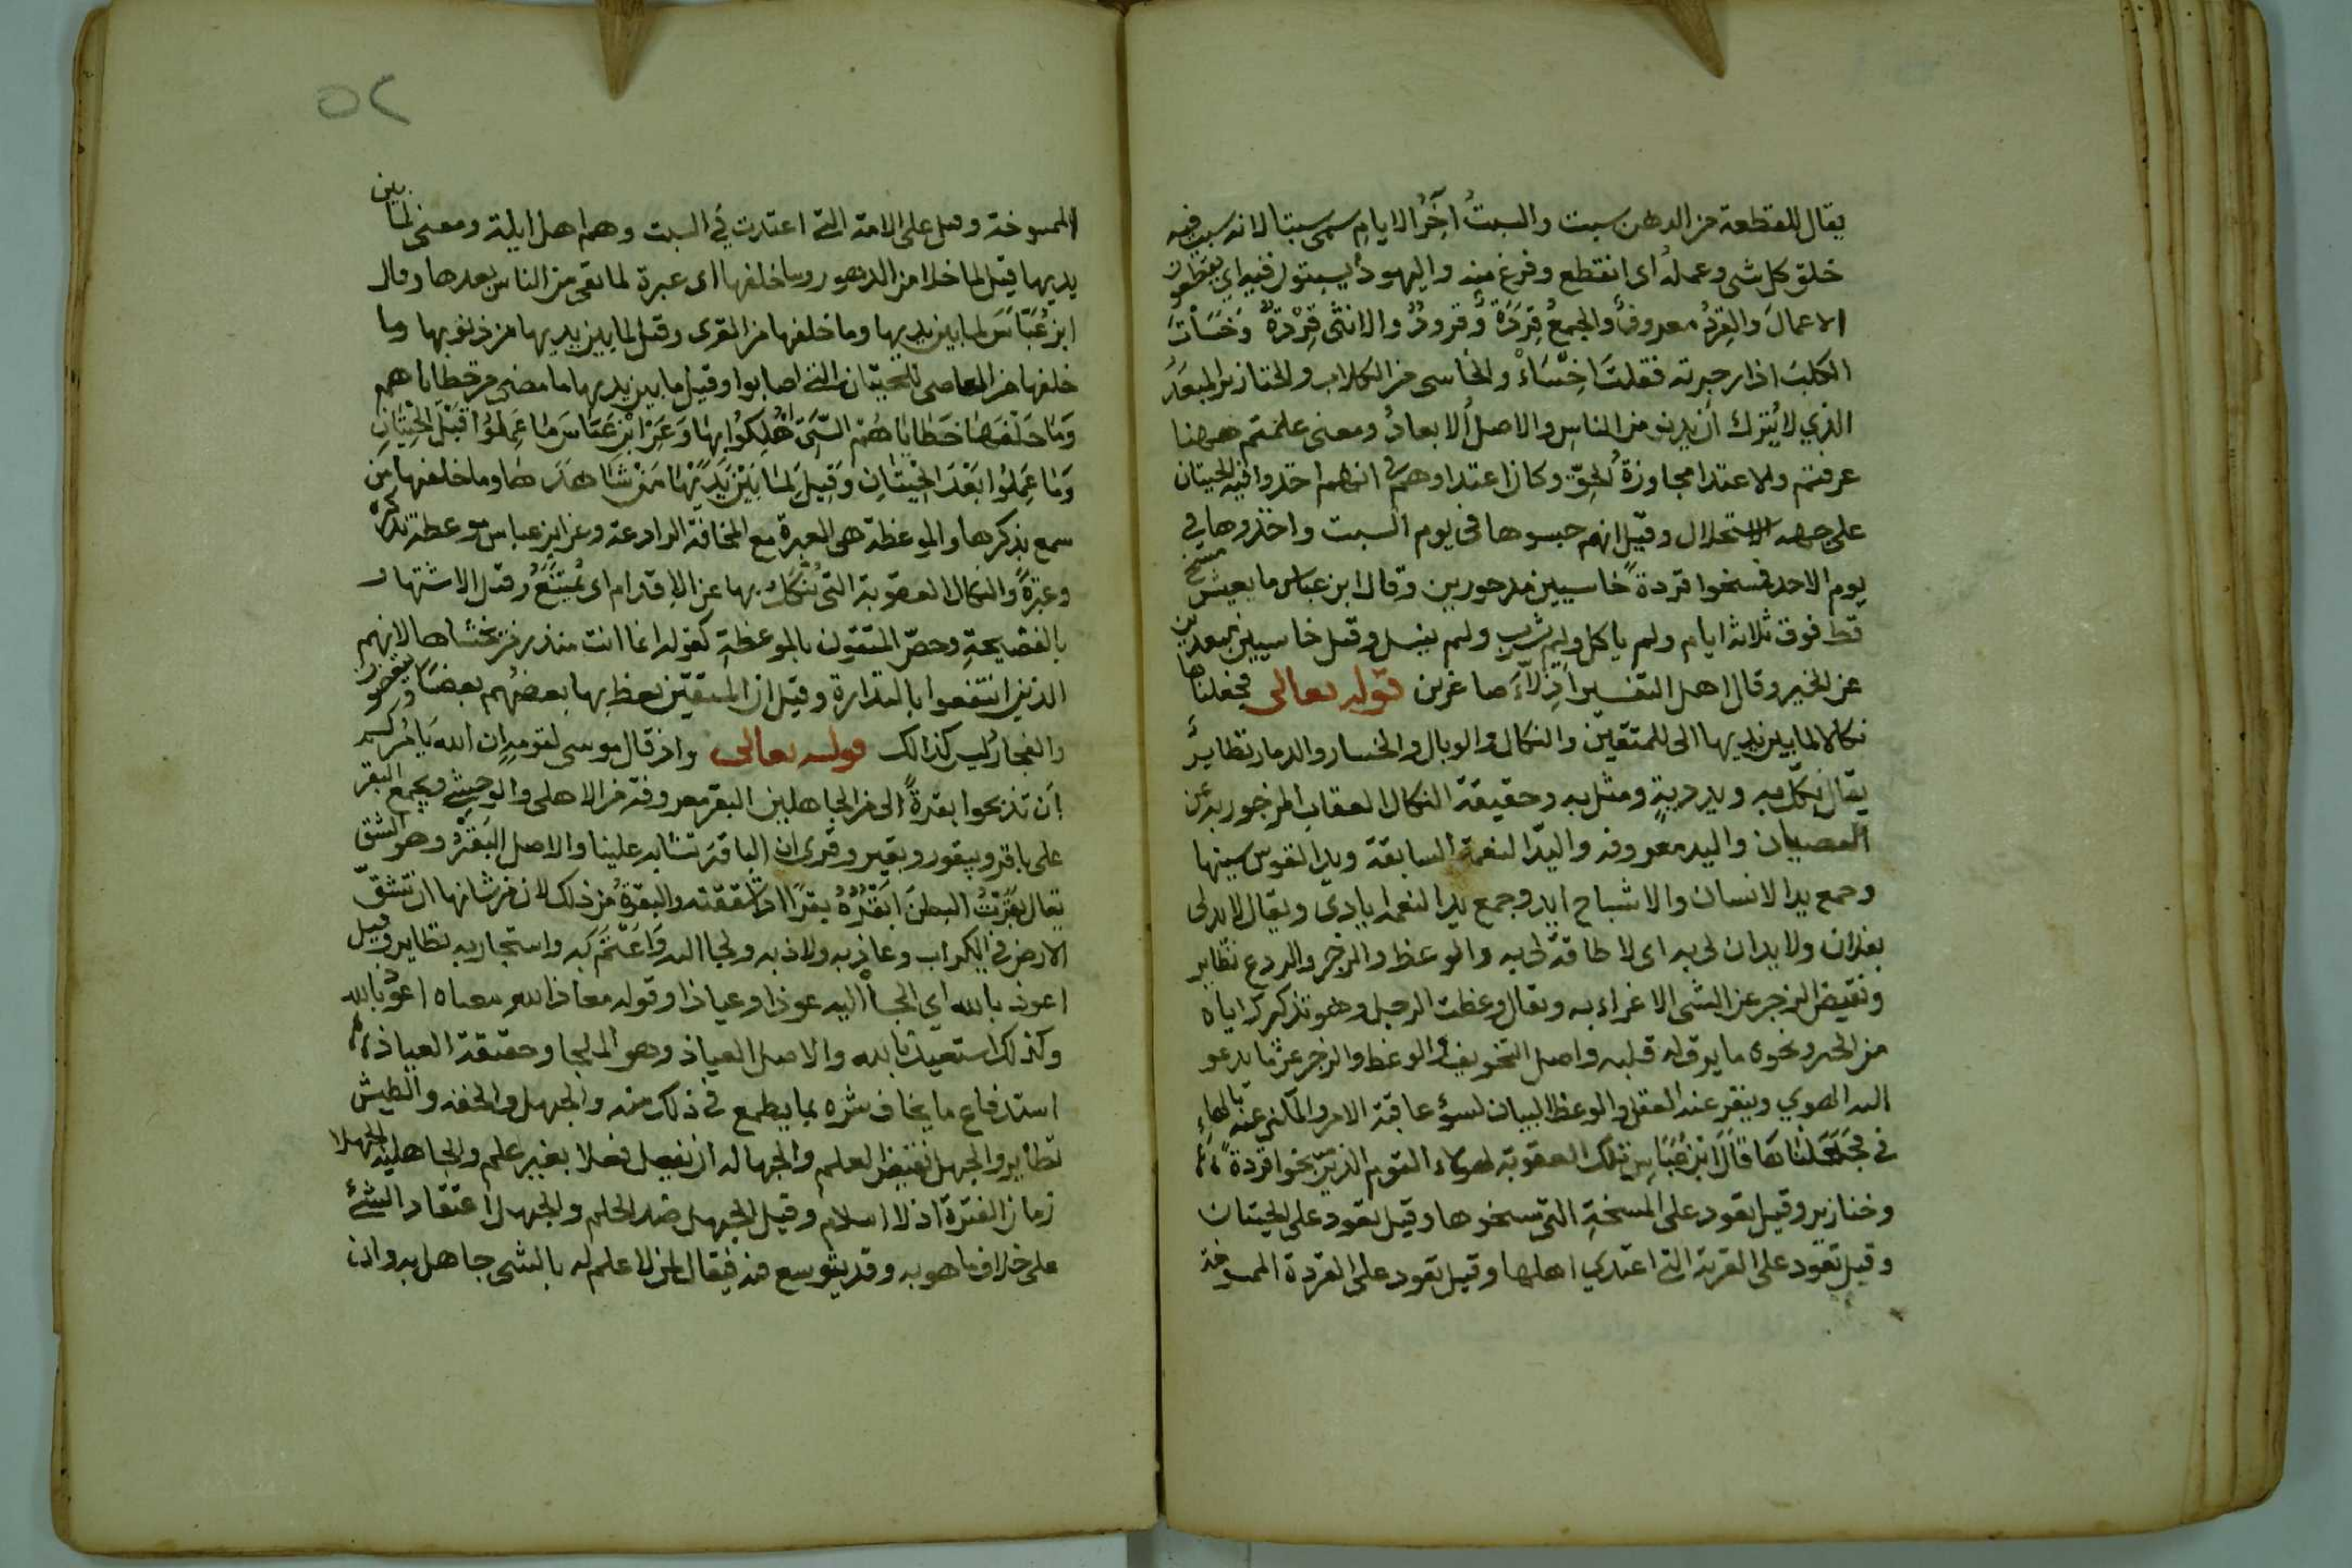 يقال للقطعة من الدهر سبت والسبتُ آخِرُ الايامِ سمى سبتا لانه سبت فيه
خلق كل شى وعمله اى انقطع وفرغ منه واليهودُ يسبتون فيه اي يقطعون
الاعمالَ والقِردُ معروفٌ والجمعُ قِرَدَةٌ وقرودٌ والانثى قِرْدَةٌ وَخَسَأْتَ
الكلبَ اذا زجرته فقلتَ اخْسَاءْ والخاسى من الكلاب والخنازير المبعَدُ
الذي لا يُترك أن يدنو من الناسِ والاصل الابعادُ ومعنى علمتم ههنا
عرفتم والاعتدا مجاوزة الحقّ وكان اعتداوهم انهم اخذوا فيه الحيتان
على جهة الاستحلال وقيل انهم حبسوها فى يوم السبت واخذوها فى
يوم الاحد فمسخوا قردةً خاسيين مدحورين وقال ابن عباس ما يعيش مسخ
قط فوق ثلاثة ايام ولم ياكل ولم يشرب ولم ينسل وقيل خاسيين مبعدين
عن الخير وقال اهل التفسير اذلاّءَ صاغرين قوله تعالى فجعلناها
نكالا لما بين يديها الى للمتقين والنكال والوبال والخسار والدمار نظايرُ
يقال نكّل به وبدد به ومثل به وحقيقة النكال العقاب المزجور به عن
العصيان واليد معروفة واليدُ النعمة السابقة ويد القوس سيتها
وجمع يد الانسان والاشباح ايد وجمع يد النعمة ايادى ويقال لا يد لى
بفلان ولا يدان لى به اى لا طاقة لى به والوعظ والزجر والردع نظاير
ونقيض الزجر عن الشى الاغراء به ويقال وعظت الرجل وهو تذكيرك اياه
من الخير ونحوه ما يرق له قلبه واصل التخويف الوعظ والزجر عن ما يدعو
اليه الهوي وينفر عنه العقل والوعظ البيان لسؤ عاقبة الامر والمكنى عنه بالهاءِ
فى فَجَعَلْنَاهَا قَالَ ابْنُ عَبَّاسٍ تلك العقوبة لهولاء القوم الذين مسخوا قردةً
وخنازير وقيل تعود على المسخةِ التى مسخوها وقيل تعود على الحيتان
وقيل تعود على القرية التى اعتدي اهلها وقيل تعود على القردة الممسوخة
٥٢
الممسوخة وقيل على الامة التى اعتدت فى السبت وهم اهل ايلة ومعنى لما بين
يديها قيل لما خلا من الدهور وما خلفها اى عبرة لما بقى من الناس بعدها وقال
ابن عَبَّاسَ لما بين يديها وما خلفها من القرى وقيل لما بين يديها من ذنوبها وما
خلفها من المعاصى للحيتان التى اصابوا وقيل ما بين يديها ما مضى من خطاياهم
وَمَا خَلْفَهَا خَطَايَاهُمْ الَّتِى اُهْلِكُوا بِهَا وَعَنِ ابْنِ عَبَّاسَ مَا عَمِلُوُا قَبْلَ الحِيتَانِ
وَمَا عَمِلُوُا بَعْدَ الْحِيتَانِ وَقِيلَ لِمَا بَيْنَ يَدَيْهَا مَنْ شَاهَدَهَا وما خلفها من
سمع بذكرها والموعظة هى العبرة مع المخافة الرادعة وعن ابن عباس موعظة تذكرة
وعبرةً والنكال العقوبة التى يُنكَّلُ بها عن الاقدام اى يُمتنَعُ وقيل الاشتهار
بالفضيحةِ وخصّ المتقون بالموعظةِ كقوله انما انت منذر من يخشاها لانهم
الذين انتفعوا بالنذارة وقيل ان المتقين يعظ بها بعضُهم بعضًا
والفجارُ ليس كذالك قوله تعالى واذ قال موسى لقومه ان الله يَامُركم
اَن تذبحوا بقرةً الى من الجاهلين البقر معروفة من الاهلى والوحشى ويجمع البقر
على باقر وبيقور وبقير وقرى ان الباقر تشابه علينا والاصل البَقْرُ وهو الشقّ
يقال بَقَرْتُ البطنَ اَبقُرُهُ بقرًا اذا شققته والبقرةُ من ذلك لان من شانها ان تشقّ
الارض فى الكراب وعاذ به ولاذ به ولجا اليه وَاعْتَصَم به واستجار به نظاير وقيل
اعوذ بالله اي الجأُ اليه عوذا وعياذا وقوله معاذ الله معناه اعوذ بالله
وكذلك استعيذ بالله والاصل العياذ وهو الملجا وحقيقة العياذ
استدفاع ما يخاف شره بما يطمع فى ذلك منه والجهل والخفة والطيش
نظاير والجهل نقيض العلم والجهالة ان يفعل فعلا بغير علم والجاهلية الجهلا
زمان الفترة اذ لا اسلام وقيل الجهل ضد الحلم والجهل اعتقاد الشئ
على خلاف ما هو به وقد يتوسع فيه فيقال لمن لا علم له بالشى جاهل به وان